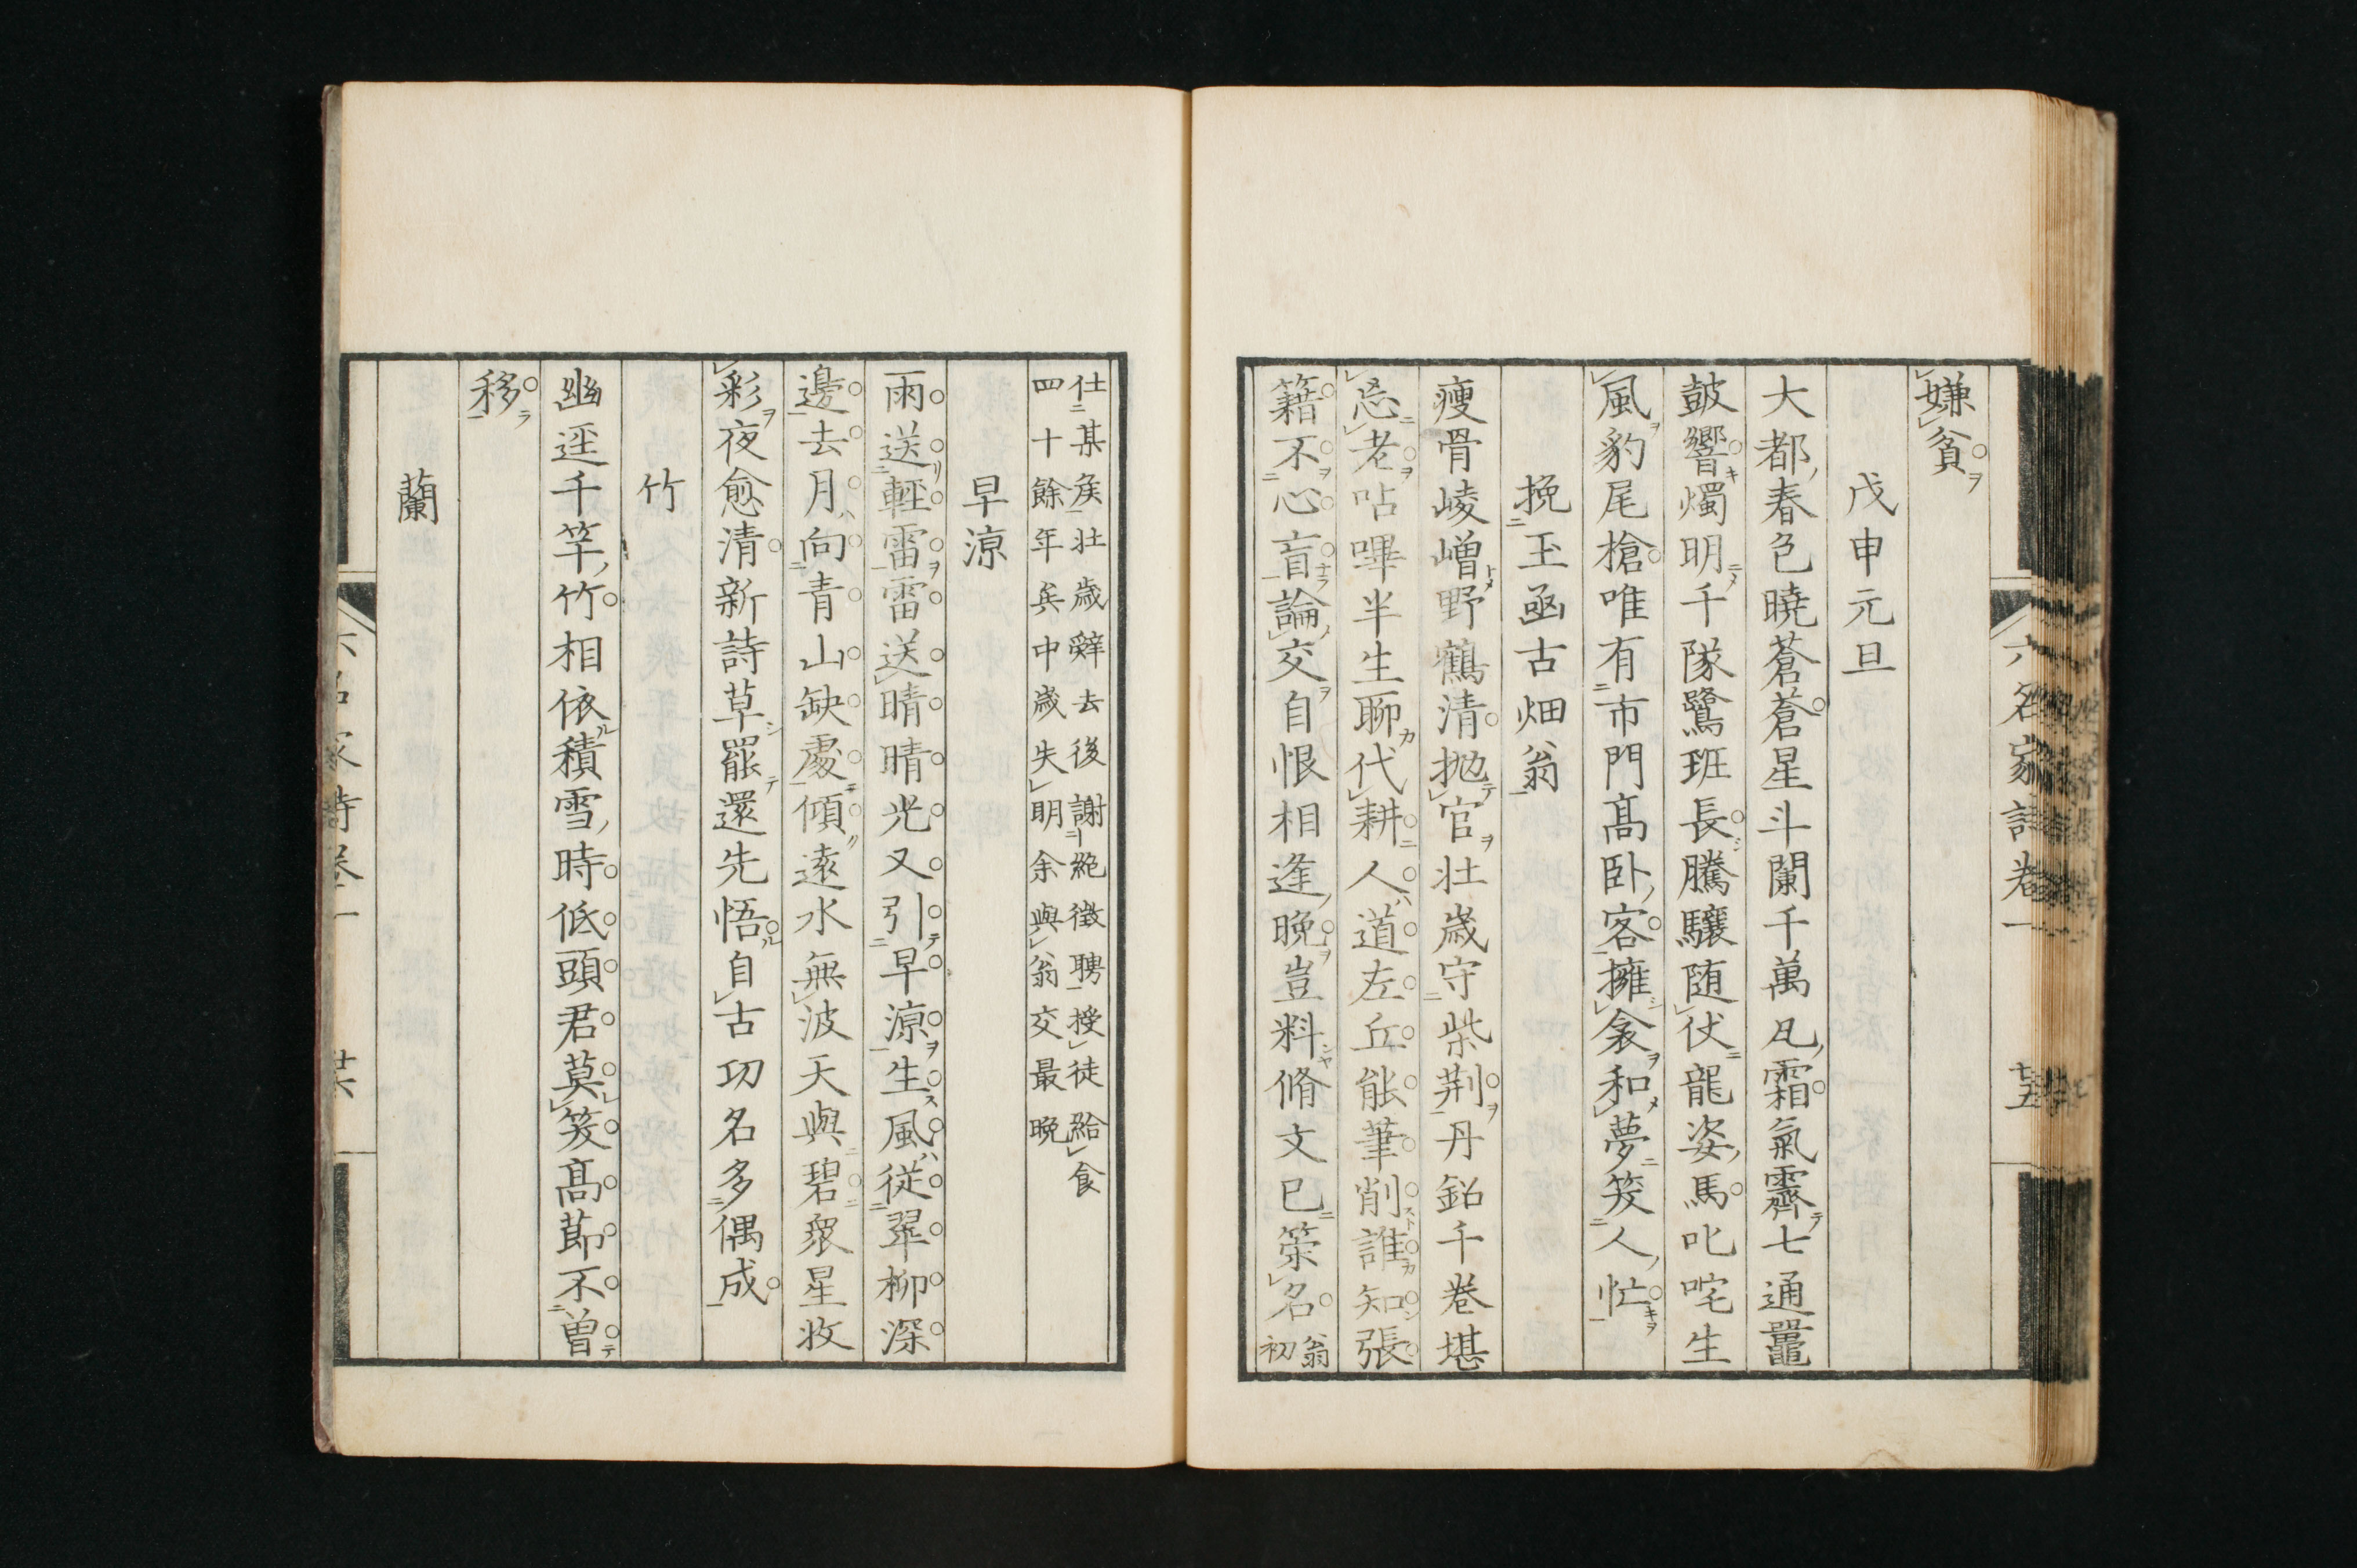 嫌貧
戊申元旦
大都春色曉蒼蒼星斗闌千萬瓦霜氣霽七通鼉
鼓響燭明千隊鷺班長騰驤随伏龍姿馬叱咤生
風豹尾槍唯有市門高臥客擁衾和夢笑人忙
挽玉函古畑翁
瘦骨崚嶒野鶴清拋官壯歲守柴荆丹鉛千卷堪
忘老呫嗶半生聊代耕人道左丘能筆削誰知張
籍不心盲論交自恨相逢晚豈料脩文已策名翁
初
六名家詩卷一
十五
仕某矦壯歲辤去後謝絕徵聘授徒給食
四十餘年兵中歲失明余與翁交最晚
早涼
雨送輕雷雷送晴晴光又引早涼生風從翠柳深
邊去月向青山缺處傾遠水無波天與碧衆星收
彩夜愈清新詩草罷還先悟自古功名多偶成
竹
幽逕千竿竹相依積雪時低頭君莫笑高節不曾
移
蘭
六名家詩卷一